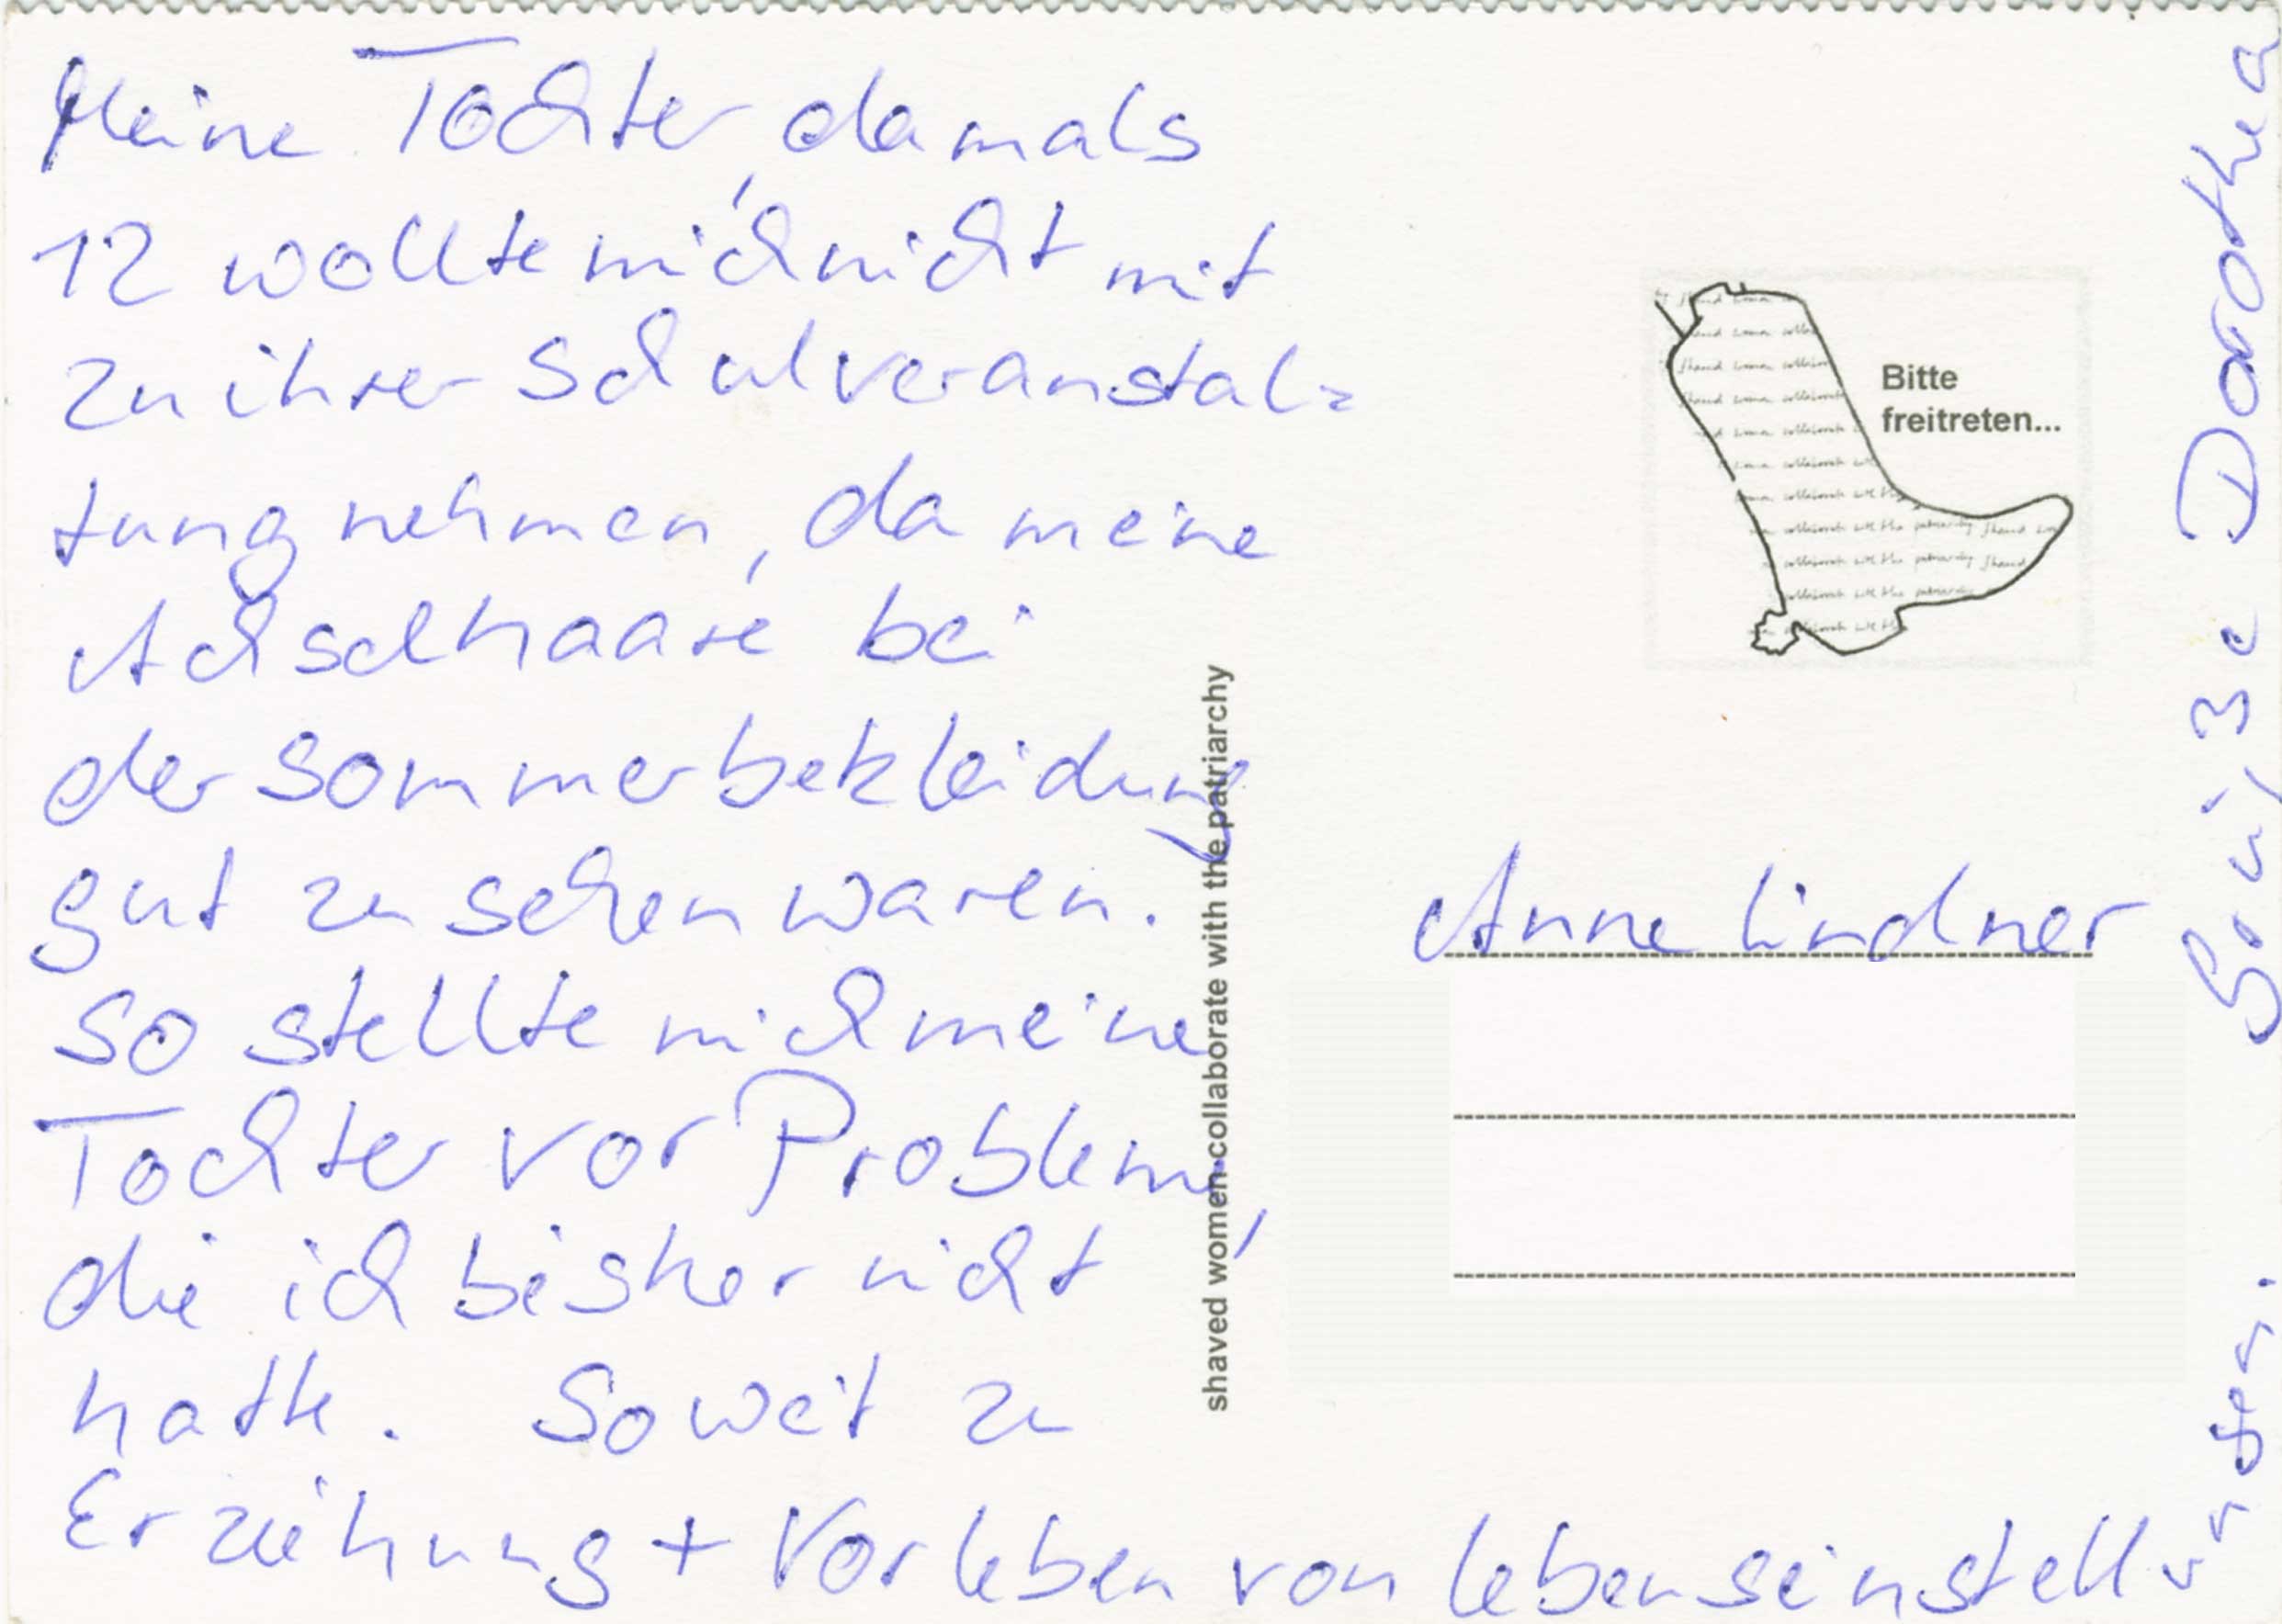 Meine Tochter, damals
12 wollte mich nicht mit
zu ihrer Schulveranstal=
tung nehmen, da meine
Achselhaare bei
der Sommerbekleidung
gut zu sehen waren.
So stellte mich meine
Tochter vor Probleme,
die ich bisher nicht
hatte. Soweit zu
Erziehung + Vorleben von Lebenseinstellungen.
Dorothea
Bitte
freitreten...
shaved women collaborate with the patriarchy
Anne Lindner